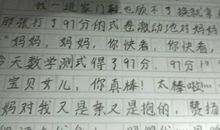 我一进家门鞋也顾不了换就
打了97分的试卷激动地对妈妈
"妈妈,妈妈,你快看,你快看,
今天数学测试得了97分,97分
宝贝女儿,你真棒!太棒啦
妈对我又是亲又是抱的 赞扬